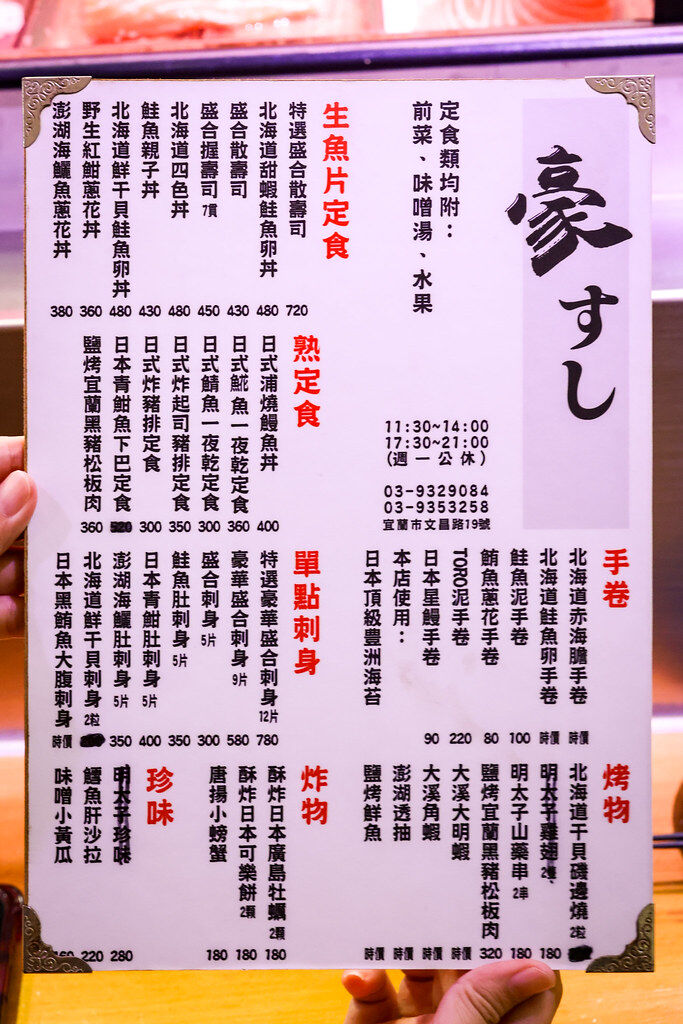 豪すし
定食類均附：
前菜、味噌湯、水果
11:30~14:00
17:30~21:00
(週一公休)
03-9329084
03-9353258
宜蘭市文昌路19號
生魚片定食
特選盛合散壽司 720
北海道甜蝦鮭魚卵丼 480
盛合散壽司 430
盛合握壽司 7貫 450
北海道四色丼 480
鮭魚親子丼 430
北海道鮮干貝鮭魚卵丼 480
野生紅魽蔥花丼 360
澎湖海鱺魚蔥花丼 380
熟定食
日式蒲燒鰻魚丼 400
日式𩸽魚一夜乾定食 360
日式鯖魚一夜乾定食 300
日式炸起司豬排定食 350
日式炸豬排定食 300
日本青魽魚下巴定食
鹽烤宜蘭黑豬松板肉 360
手卷
北海道赤海膽手卷 時價
北海道鮭魚卵手卷 時價
鮭魚泥手卷 100
鮪魚蔥花手卷 80
TORO泥手卷 220
日本星鰻手卷 90
本店使用：
日本頂級豐洲海苔
單點刺身
特選豪華盛合刺身 12片 780
豪華盛合刺身 9片 580
盛合刺身 5片 300
鮭魚肚刺身 5片 350
日本青魽肚刺身 5片 400
澎湖海鱺肚刺身 5片 350
北海道鮮干貝刺身 2粒
日本黑鮪魚大腹刺身 時價
烤物
北海道干貝磯邊燒 2粒
明太子雞翅 2隻 180
明太子山藥串 2串 180
鹽烤宜蘭黑豬松板肉 320
大溪大明蝦 時價
大溪角蝦 時價
澎湖透抽 時價
鹽烤鮮魚 時價
炸物
酥炸日本廣島牡蠣 2顆 180
酥炸日本可樂餅 2顆 180
唐揚小螃蟹 180
珍味
明太子珍味 280
鱈魚肝沙拉 220
味噌小黃瓜